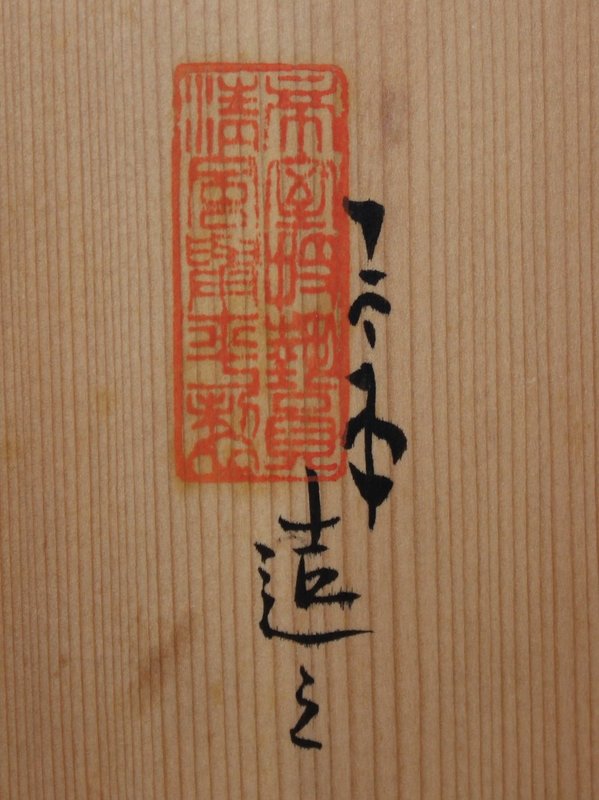 造之
帝室技藝員
清風與平製